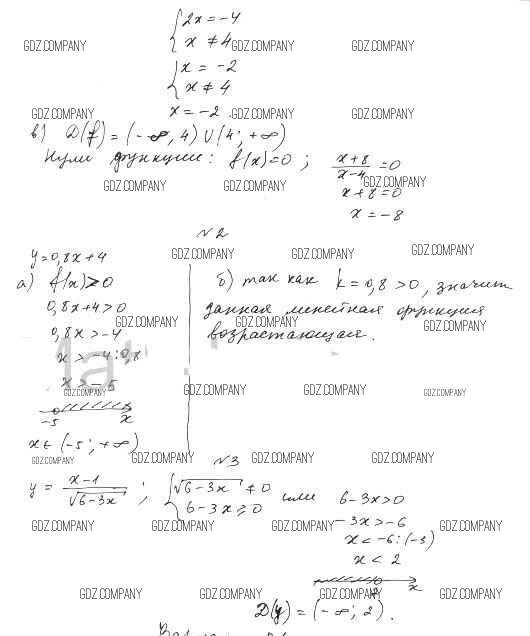 {2x = -4
x ≠ 4
GDZ.COMPANY GDZ.COMPANY GDZ.COMPANY
{x = -2
x ≠ 4
x = -2.
GDZ.COMPANY GDZ.COMPANY GDZ.COMPANY
в) D(f) = (-∞, 4) ∪ (4; +∞)
Нули функции: f(x)=0; (x+8)/(x-4) = 0
GDZ.COMPANY GDZ.COMPANY GDZ.COMPANY
x+8=0
x = -8
N2
y=0,8x+4
GDZ.COMPANY GDZ.COMPANY GDZ.COMPANY
а) f(x)>0
0,8x+4>0
0,8x>-4
x > -4:0,8
x > -5
-5 x
x ∈ (-5; +∞)
б) так как k=0,8>0, значит
данная линейная функция
возрастающая.
GDZ.COMPANY GDZ.COMPANY GDZ.COMPANY
GDZ.COMPANY GDZ.COMPANY GDZ.COMPANY GDZ.COMPANY
GDZ.COMPANY GDZ.COMPANY GDZ.COMPANY GDZ.COMPANY
N3
y = (x-1)/√(6-3x); {√(6-3x) ≠ 0
6-3x ≥ 0
или 6-3x>0
-3x>-6
GDZ.COMPANY GDZ.COMPANY GDZ.COMPANY GDZ.COMPANY
x < -6:(-3)
x < 2
2 x
GDZ.COMPANY GDZ.COMPANY GDZ.COMPANY GDZ.COMPANY
D(y) = (-∞; 2).